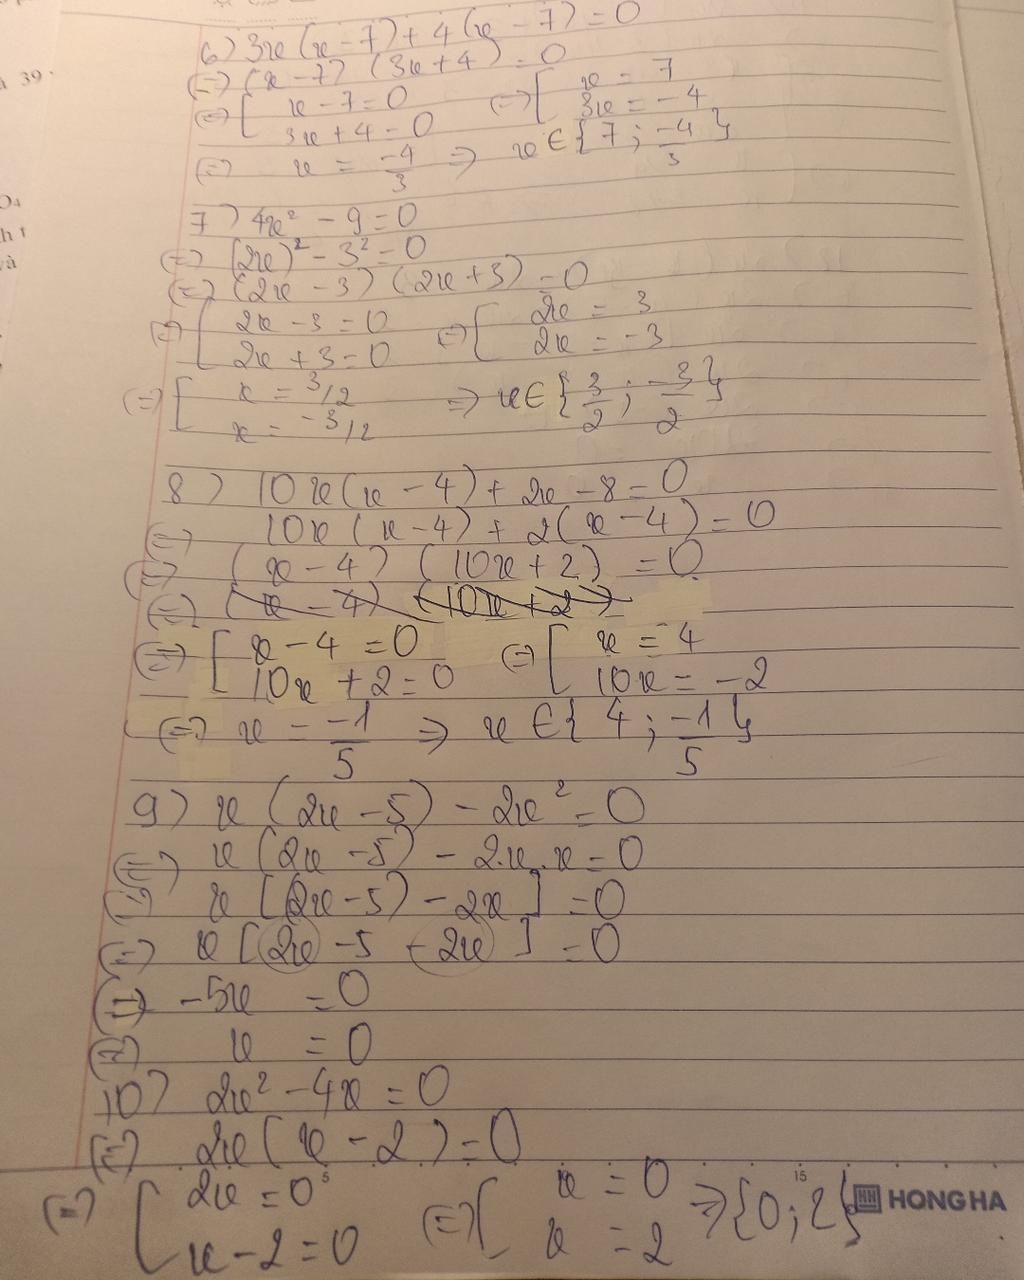 à 39
6) 3x(x - 7) + 4(x - 7) = 0
(=) (x - 7) (3x + 4) = 0
(=) [ x - 7 = 0 (=) [ x = 7
3x + 4 = 0 3x = -4
(=) x = -4/3 => x ∈ { 7 ; -4/3 }
7) 4x² - 9 = 0
(=) (2x)² - 3² = 0
(=) (2x - 3) (2x + 3) = 0
(=) [ 2x - 3 = 0 (=) [ 2x = 3
2x + 3 = 0 2x = -3
(=) [ x = 3/2 => x ∈ { 3/2 ; -3/2 }
x = -3/2
8) 10x(x - 4) + 2x - 8 = 0
(=) 10x (x - 4) + 2(x - 4) = 0
(=) (x - 4) (10x + 2) = 0
(=) (x - 4) (10x + 2)
(=) [ x - 4 = 0 (=) [ x = 4
10x + 2 = 0 10x = -2
(=) x = -1/5 => x ∈ { 4 ; -1/5 }
9) x (2x - 5) - 2x² = 0
(=) x (2x - 5) - 2.x.x = 0
(=) x [(2x - 5) - 2x ] = 0
(=) x [2x - 5 - 2x ] = 0
(=) -5x = 0
(=) x = 0
10) 2x² - 4x = 0
(=) 2x(x - 2) = 0
(=) [ 2x = 0 (=) [ x = 0 => {0; 2}
x - 2 = 0 x = 2
5 15
HONG HA